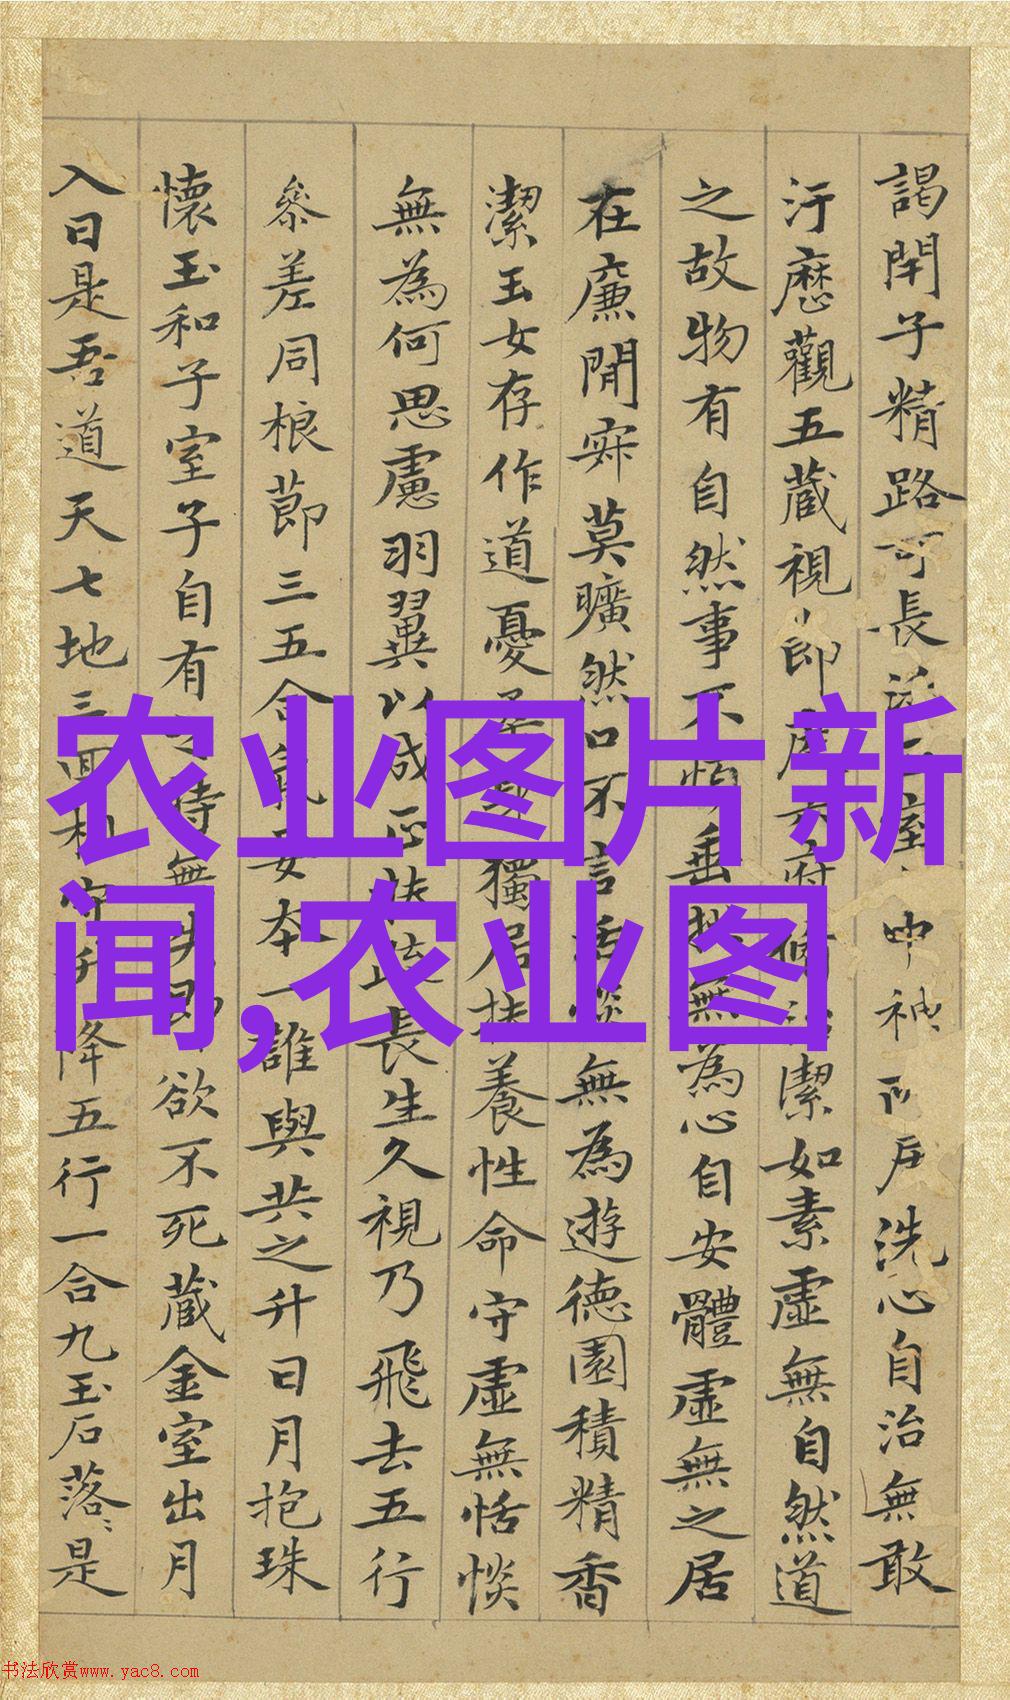 謁閇子精路可長
中神
戶洗心自治無敢
汙歷觀五藏視
即
潔如素虛無自然道
之故物有自然事不
垂
無為心自安體虛無之居
在廉閒寂莫曠然口不言
無為遊德園積精香
潔玉女存作道憂
獨居扶養性命守虛無恬惔
無為何思慮羽翼以成正扶
長生久視乃飛去五行
叅差同根莭三五合氣要本一誰與共之升日月抱珠
懷玉和子室子自有
持無失即
欲不死藏金室出月
入日是吾道天七地三回相守
降五行一合九玉石落〻是
农业图片新
闻,农业图
书法欣赏www.yac8.com